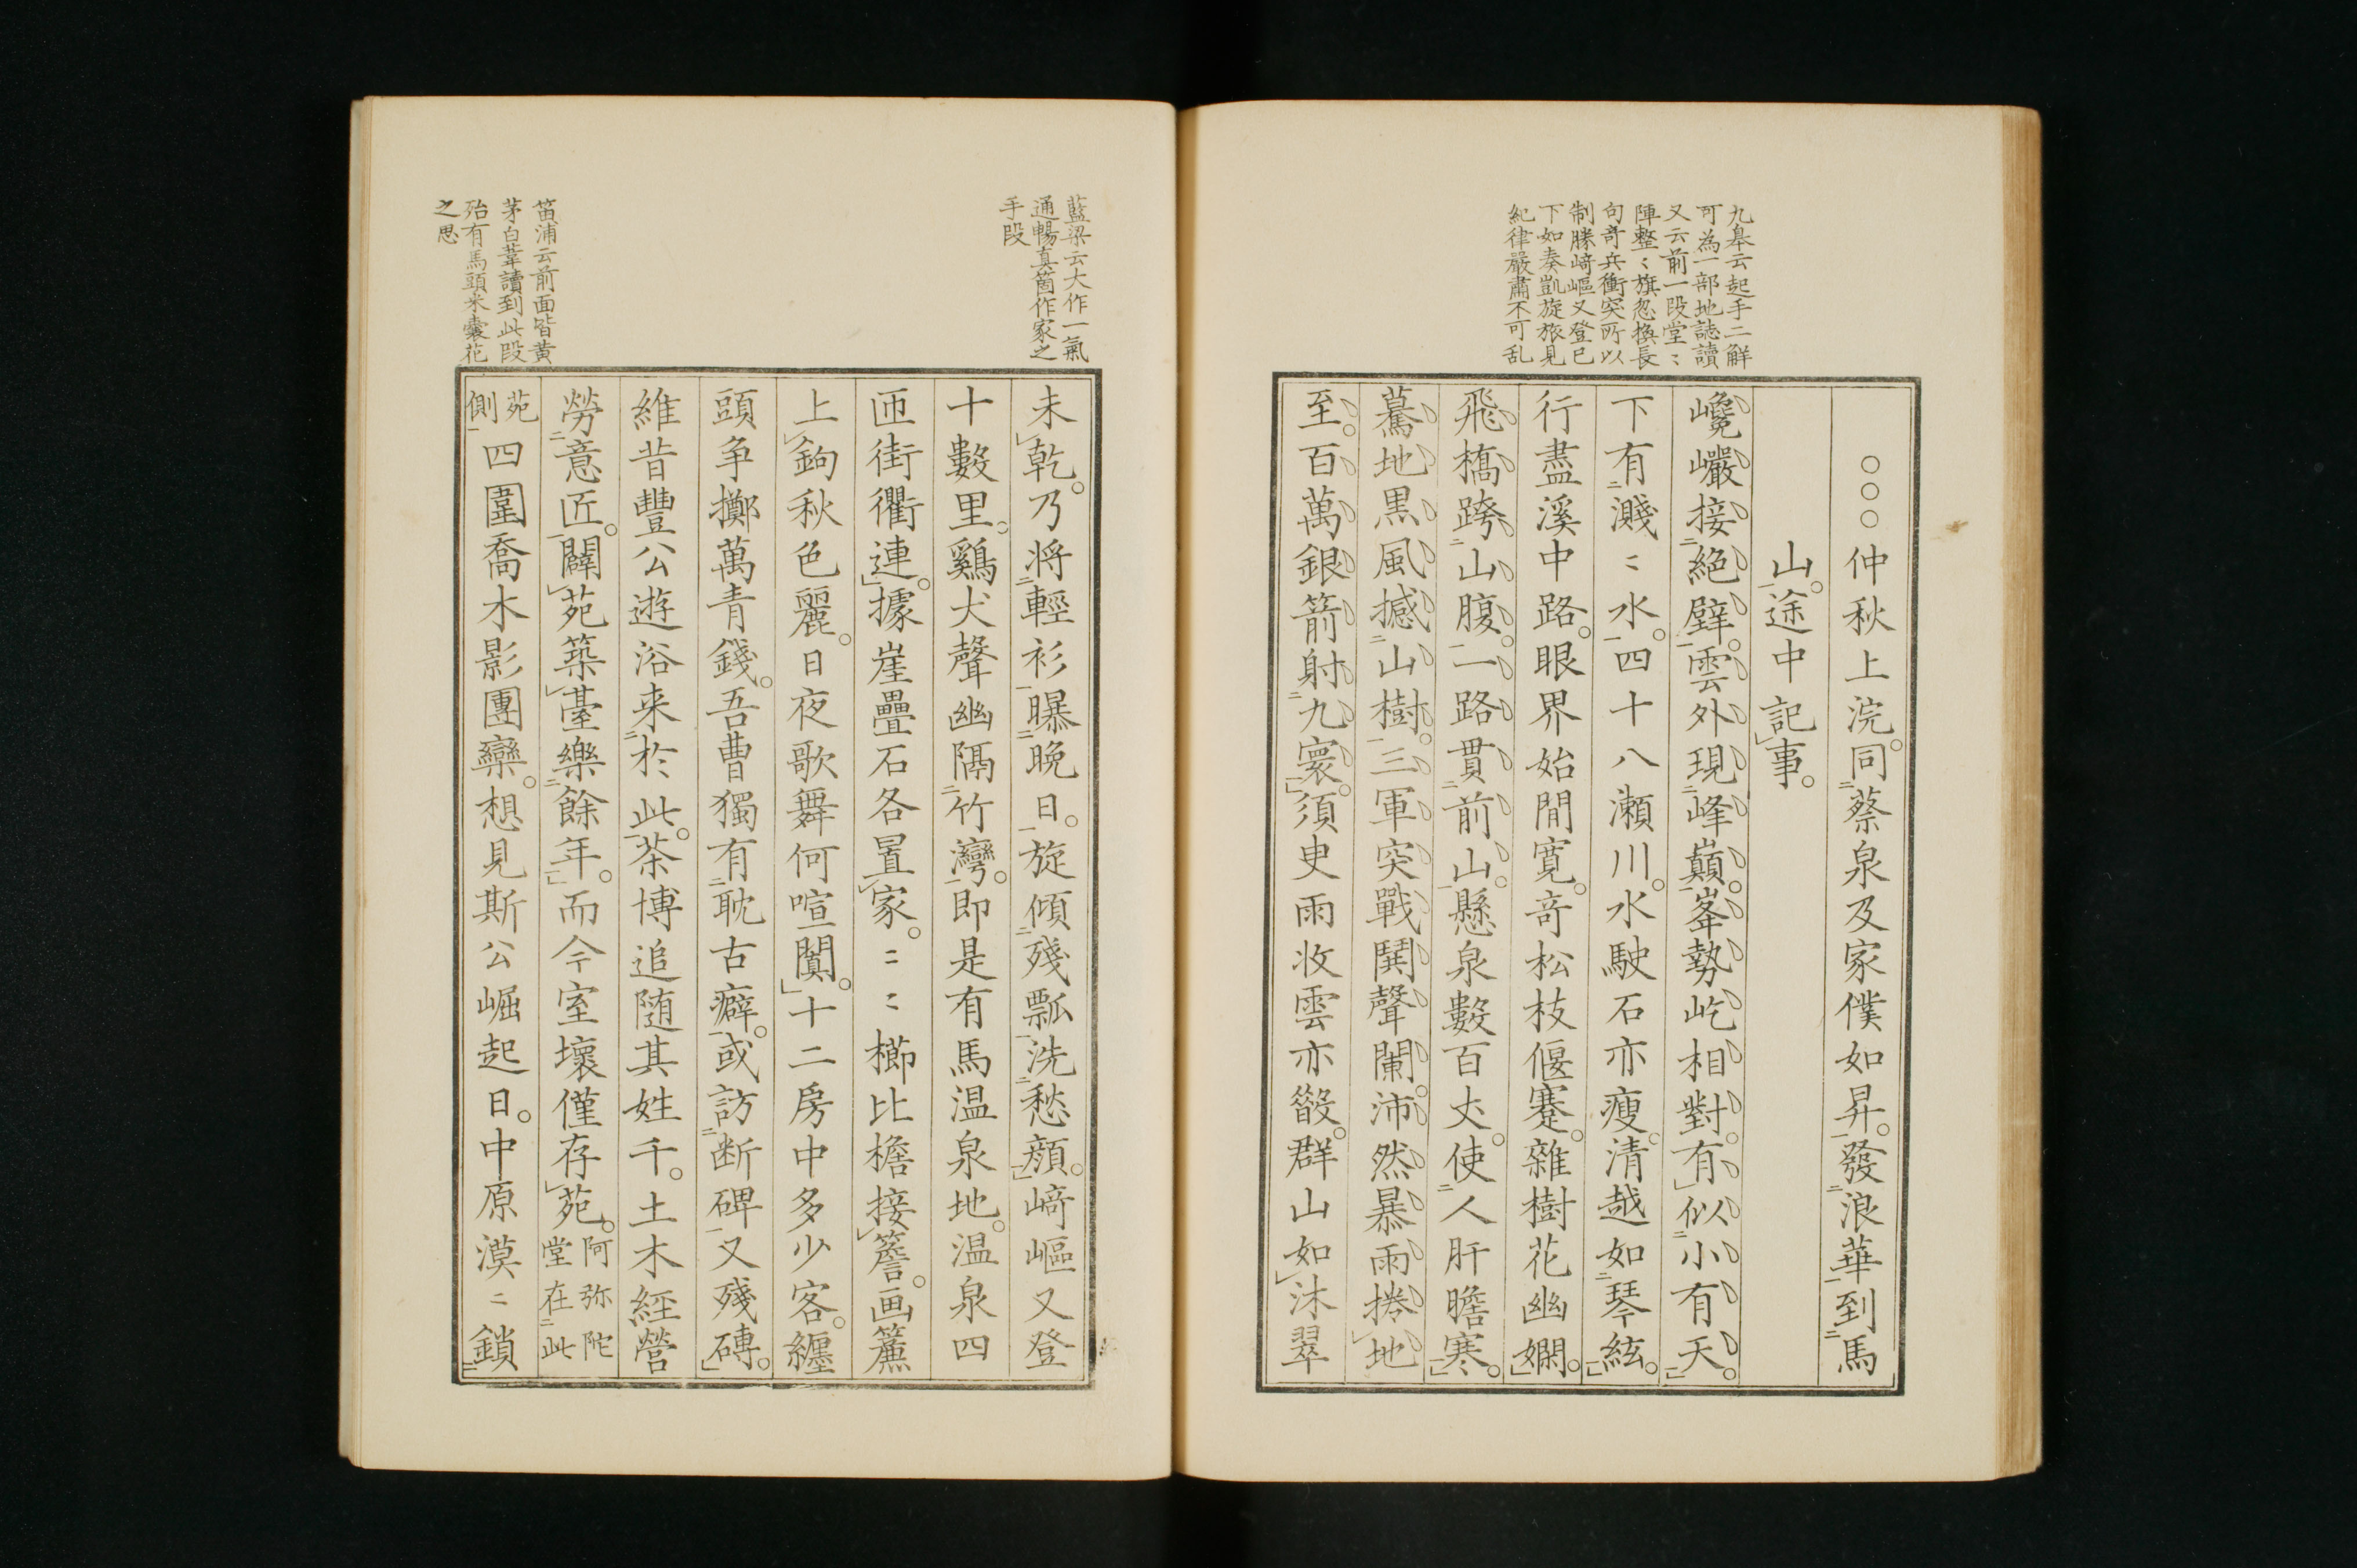 九皐云起手二解
可為一部地誌讀
又云前一段堂〻
陣整〻旗忽換長
句奇兵衝突所以
制勝崎嶇又登已
下如奏凱旋旅見
紀律嚴肅不可乱
○○○仲秋上浣。同蔡泉及家僕如昇。發浪華到馬
山。途中記事。
巉巖接絕壁。雲外現峰巔。峯勢屹相對。有似小有天。
下有濺〻水。四十八瀬川。水駛石亦瘦。清越如琴絃。
行盡溪中路。眼界始閒寬。奇松枝偃蹇。雜樹花幽嫻。
飛橋跨山腹。一路貫前山。懸泉數百丈。使人肝膽寒。
驀地黒風撼山樹。三軍突戰鬨聲闌。沛然暴雨捲地
至。百萬銀箭射九寰。須臾雨收雲亦斂。群山如沐翠
藍梁云大作一氣
通暢真箇作家之
手段
未乾。乃将輕衫曝晩日。旋傾殘瓢洗愁顏。崎嶇又登
十數里。鷄犬聲幽隔竹灣。即是有馬温泉地。温泉四
匝街衢連。據崖疊石各置家。〻〻櫛比檐接簷。画簾
上鉤秋色麗。日夜歌舞何喧闐。十二房中多少客。纏
頭争擲萬青錢。吾曹獨有耽古癖。或訪断碑又殘磚。
維昔豐公遊浴来於此。茶博追随其姓千。土木經營
勞意匠。闢苑築臺樂餘年。而今室壞僅存苑。阿弥陀堂在此
苑側四圍喬木影團欒。想見斯公崛起日。中原漠〻鎖
笛浦云前面皆黄
茅白葦讀到此段
殆有馬頭米囊花
之思